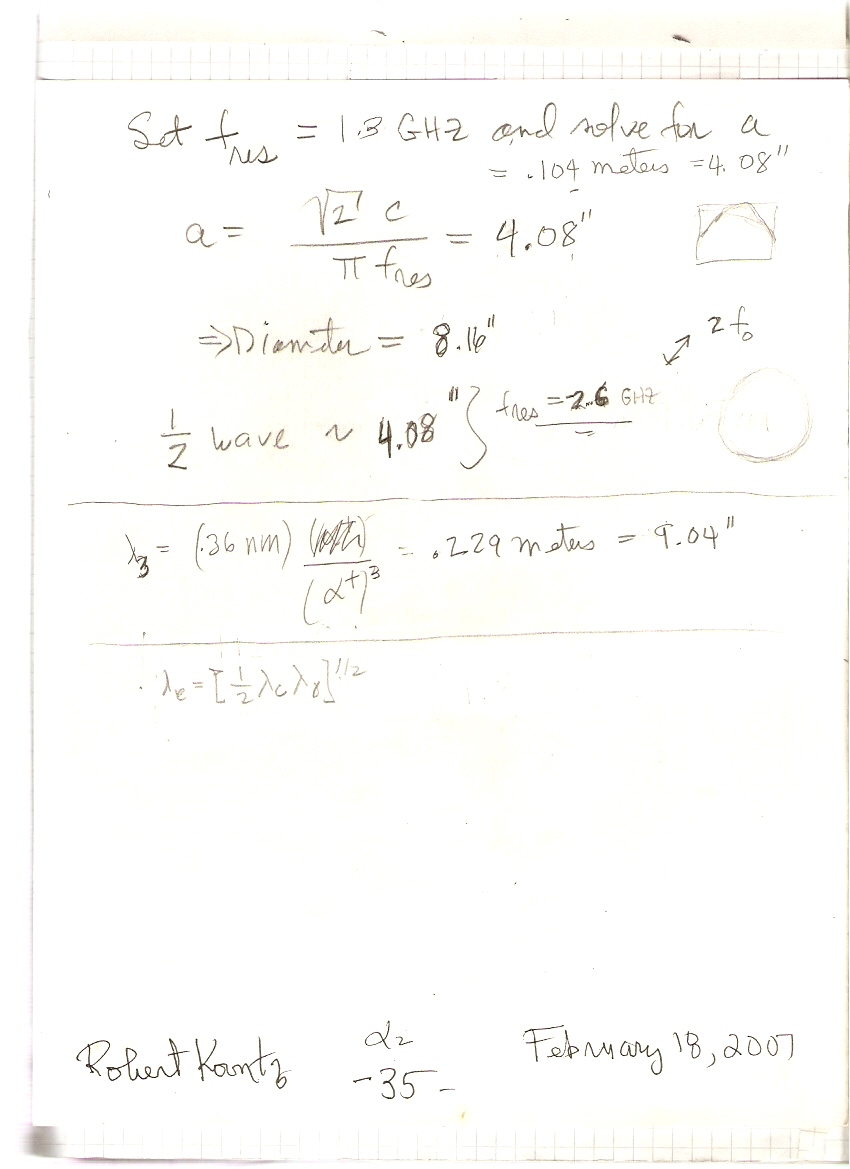 Set f_res = 1.3 GHZ and solve for a
= .104 meters = 4.08"
a = √2 c / π f_res = 4.08"
⇒ Diameter = 8.16"
2 f₀
1/2 wave ~ 4.08" } f_res = 2.6 GHZ
λ₃ = (.36 nm) / (α⁺)³ = .229 meters = 9.04"
λ_e = [1/2 λ_c λ_γ]^1/2
Robert Kantz
α₂
-35-
February 18, 2007